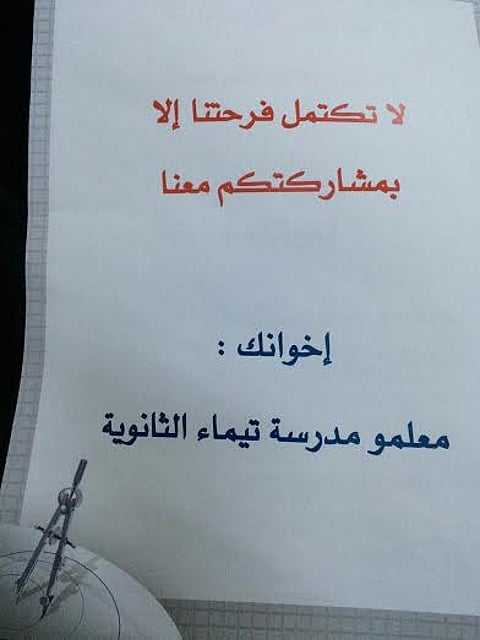 لا تكتمل فرحتنا إلا
بمشاركتكم معنا
إخوانك :
معلمو مدرسة تيماء الثانوية